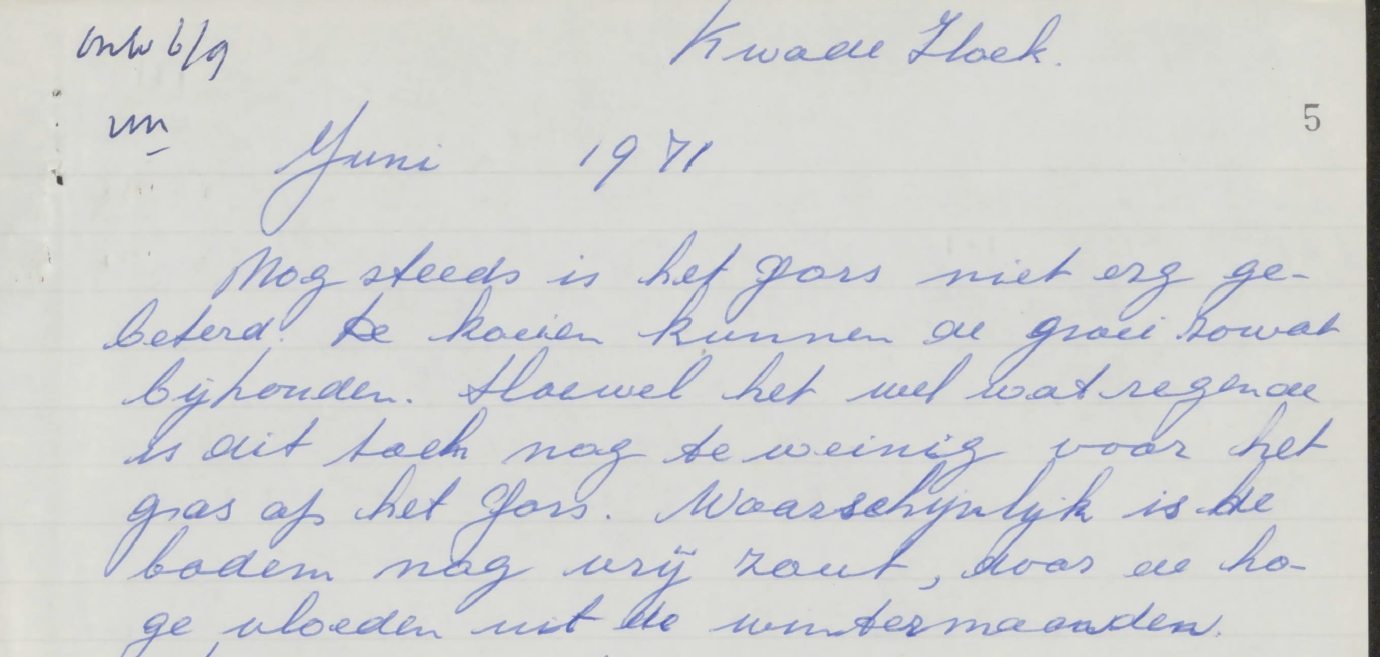 Kwade Hoek.
5
Juni 1971
Nog steeds is het Gors niet erg ge-
beterd. De koeien kunnen de groei zowat
bijhouden. Hoewel het wel wat regende
is dit toch nog te weinig voor het
gras op het Gors. Waarschijnlijk is de
bodem nog vrij zout, door de ho-
ge vloeden uit de wintermaanden.